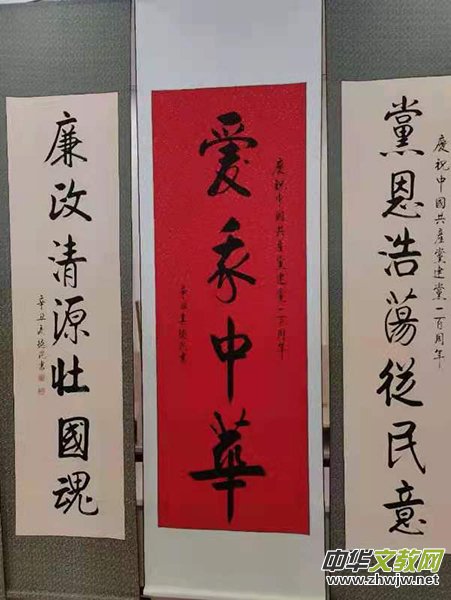 慶祝中國共產黨建黨一百周年
黨恩浩蕩從民意
慶祝中國共產黨建黨一百周年
愛我中華
辛丑
書
廉政清源壯國魂
辛丑
書
中华文教网
www.zhwjw.net